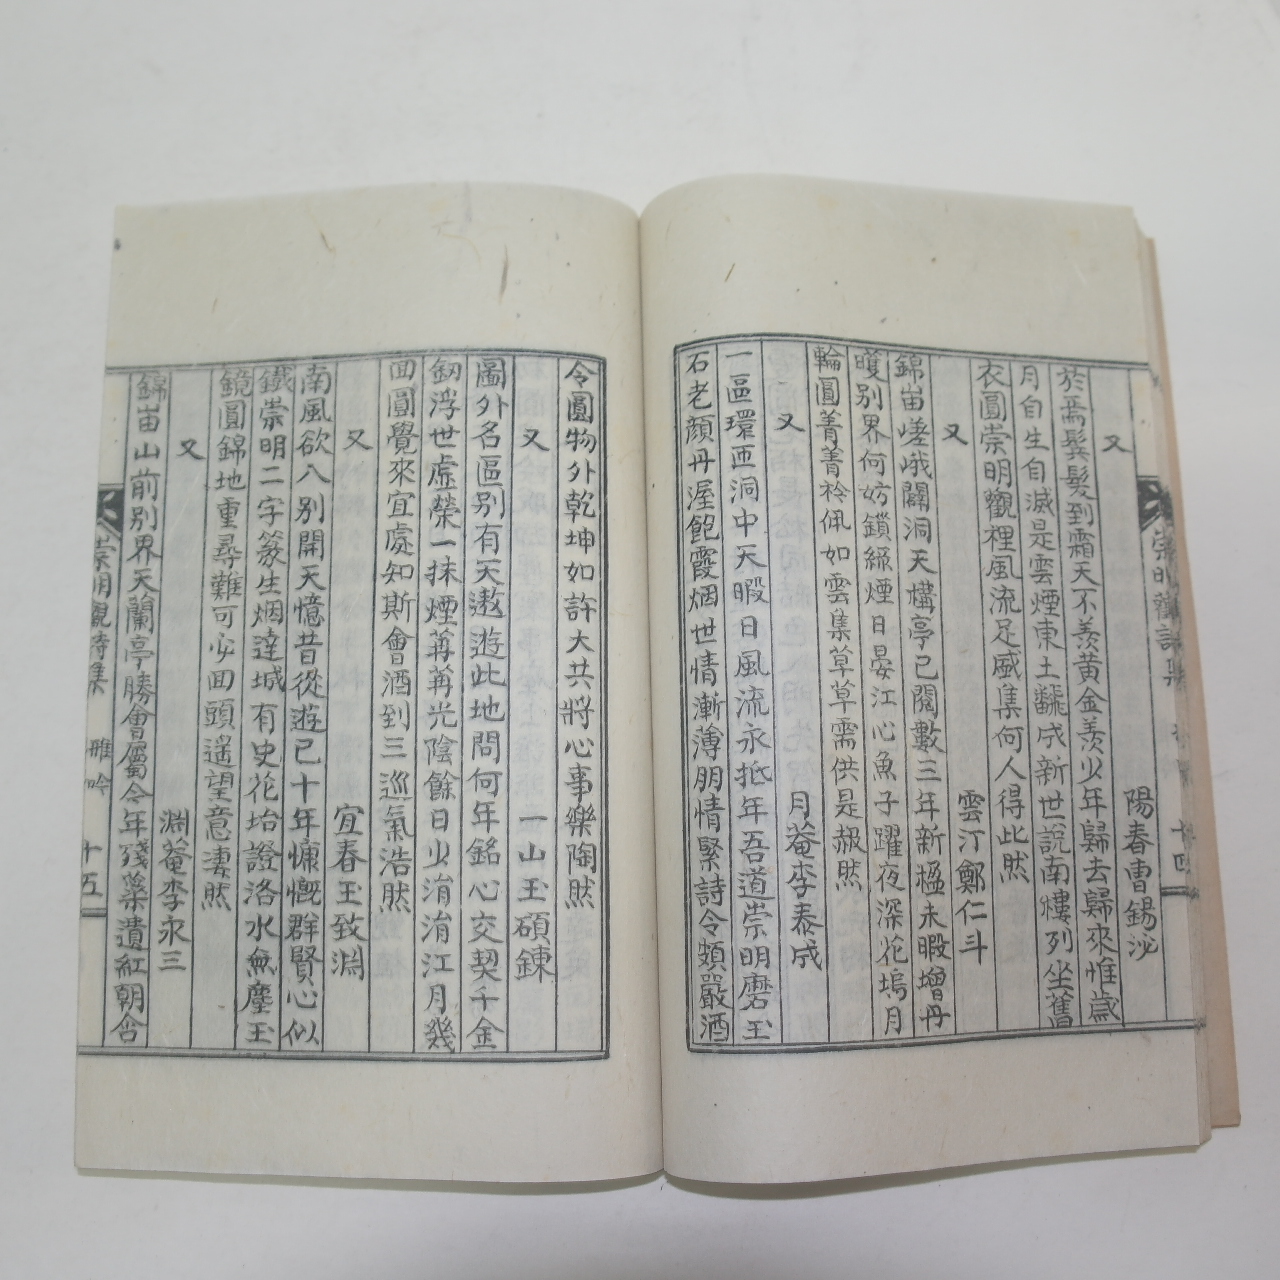 又 陽春曹錫泌
於焉鬓髮到霜天不羨黃金羨少年歸去歸來惟歲
月自生自滅是雲煙東土飜成新世說南樓列坐舊
衣圓崇明觀裡風流足咸集何人得此然
又 雲汀鄭仁斗
錦峀嵯峨闢洞天構亭已閱數三年新楹未暇增丹
雘別界何妨鎖綠煙日晏江心魚子躍夜深花塢月
輪圓菁菁衿佩如雲集草草需供是赧然
又 月菴李泰成
一區環匝洞中天暇日風流永抵年吾道崇明磨玉
石老顔丹渥飽霞烟世情漸薄朋情緊詩令頗嚴酒
令圓物外乾坤如許大共將心事樂陶然
又 一山玉碩鍊
圖外名區别有天遨遊此地問何年銘心交契千金
釰浮世虛榮一抹煙苒苒光陰餘日少洧洧江月幾
面圓覺來宜處知斯會酒到三巡氣浩然
又 宜春玉致淵
南風欲入別開天憶昔從遊已十年慷慨群賢心似
鐵崇明二字篆生烟達城有史花坮證洛水魚塵玉
鏡圓錦地重尋難可必回頭遙望意凄然
又 淵菴李永三
錦峀山前別界天蘭亭勝會屬今年殘藥遺紅朝含
崇明觀詩集 雅吟 十五
崇明觀詩集 十四